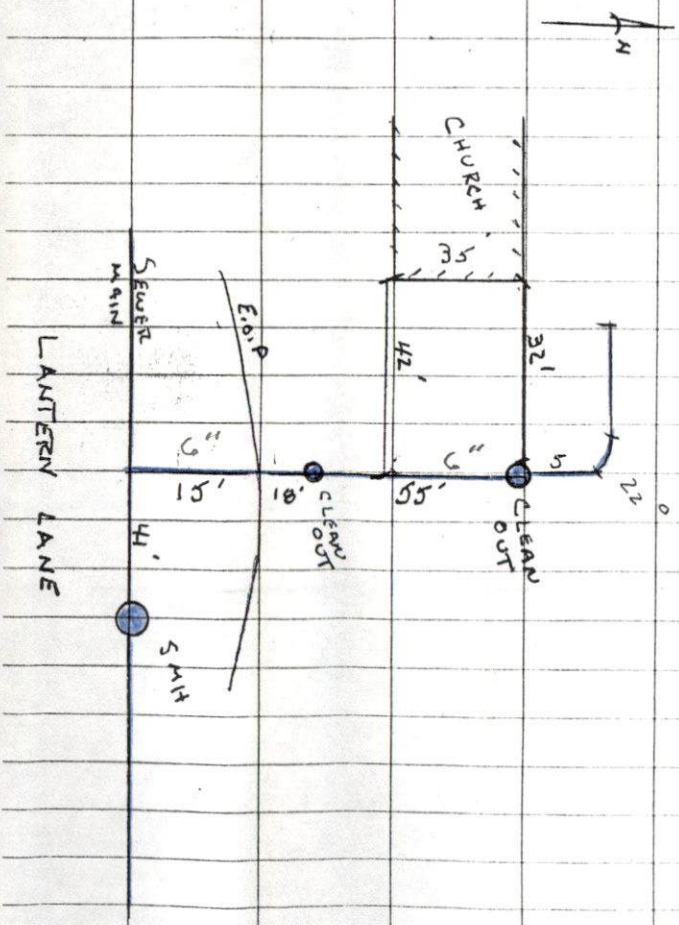 N
CHURCH
35
32'
42'
22°
5
CLEAN
OUT
6"
55'
CLEAN
OUT
18'
E.O.P
6"
15'
SEWER
MAIN
41'
SMH
LANTERN LANE